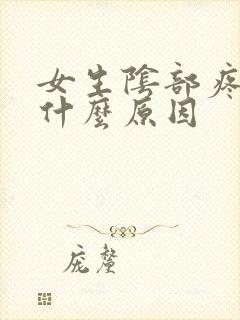 女生陰部疼
什麼原因
庞鳌